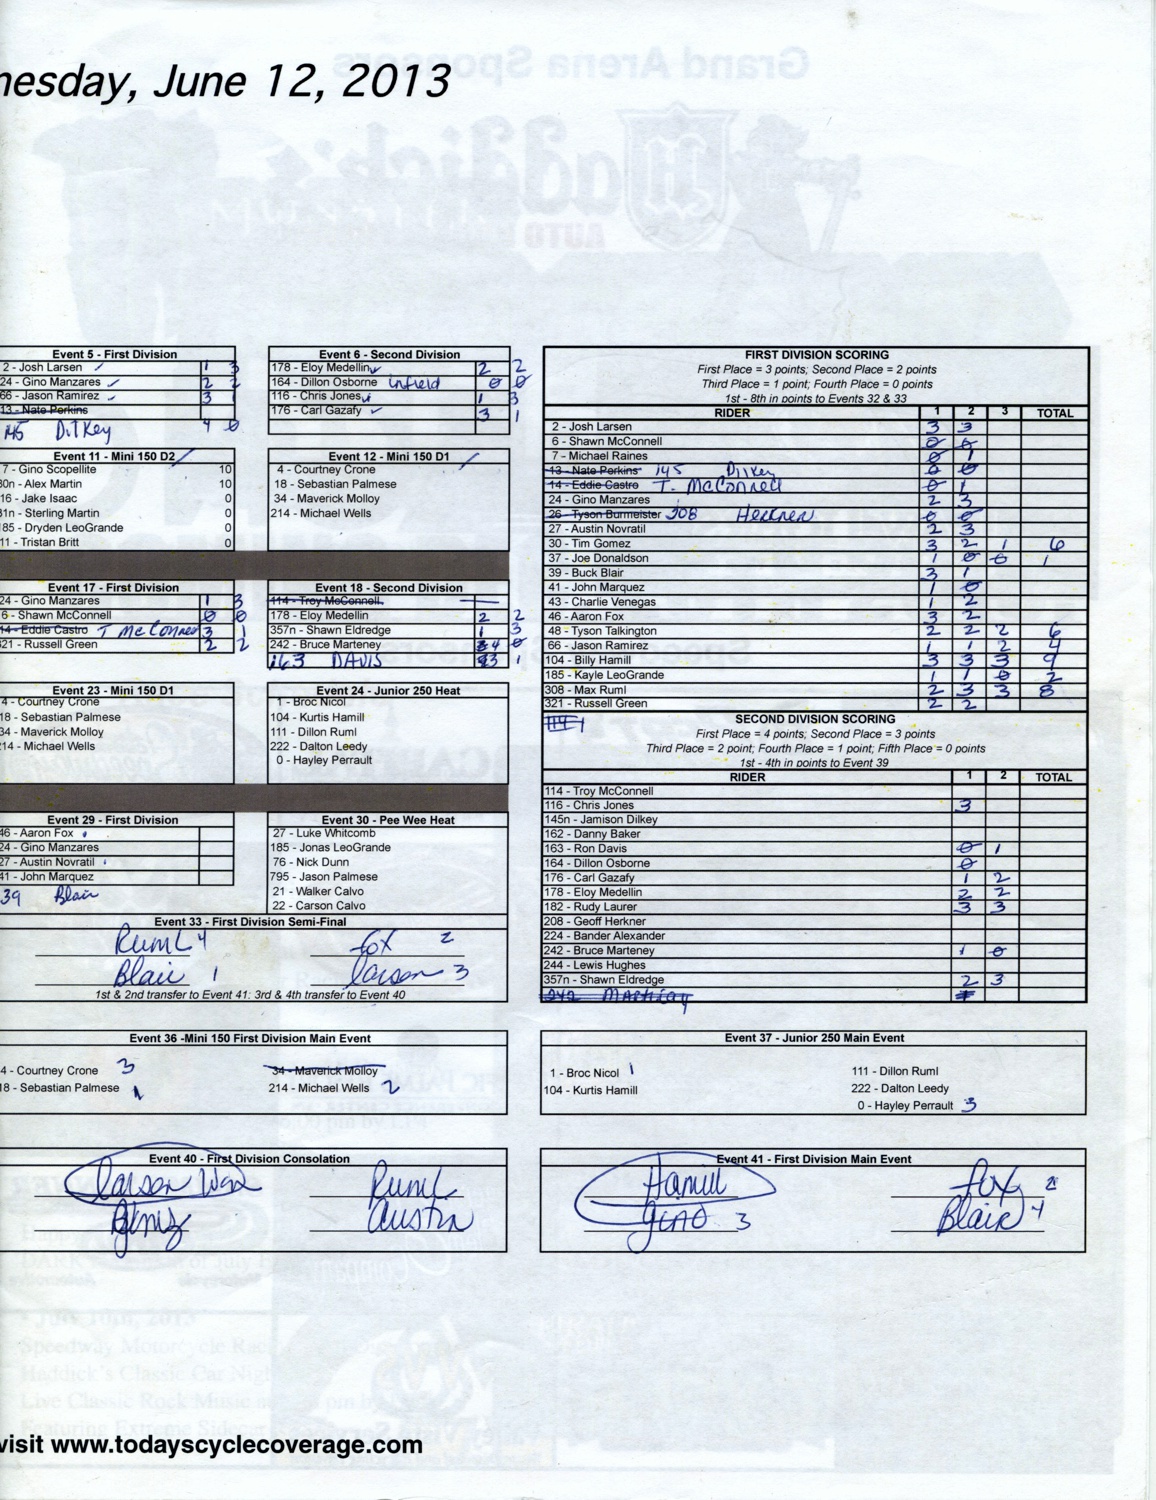 nesday, June 12, 2013
Event 5 - First Division
2 - Josh Larsen 1 3
24 - Gino Manzares 2 2
66 - Jason Ramirez 3 1
13 - Nate Perkins
145 Dilkey 4 0
Event 6 - Second Division
178 - Eloy Medellin 2 2
164 - Dillon Osborne infield 0 0
116 - Chris Jones 1 3
176 - Carl Gazafy 3 1
Event 11 - Mini 150 D2
7 - Gino Scopellite 10
80n - Alex Martin 10
16 - Jake Isaac 0
31n - Sterling Martin 0
185 - Dryden LeoGrande 0
11 - Tristan Britt 0
Event 12 - Mini 150 D1
4 - Courtney Crone
18 - Sebastian Palmese
34 - Maverick Molloy
214 - Michael Wells
Event 17 - First Division
24 - Gino Manzares 1 3
6 - Shawn McConnell 0 0
14 - Eddie Castro T McConnell 3 1
321 - Russell Green 2 2
Event 18 - Second Division
114 - Troy McConnell
178 - Eloy Medellin 2 2
357n - Shawn Eldredge 1 3
242 - Bruce Marteney 4 0
163 DAVIS 3 1
Event 23 - Mini 150 D1
4 - Courtney Crone
18 - Sebastian Palmese
34 - Maverick Molloy
214 - Michael Wells
Event 24 - Junior 250 Heat
1 - Broc Nicol
104 - Kurtis Hamill
111 - Dillon Ruml
222 - Dalton Leedy
0 - Hayley Perrault
Event 29 - First Division
46 - Aaron Fox
24 - Gino Manzares
27 - Austin Novratil
41 - John Marquez
39 Blair
Event 30 - Pee Wee Heat
27 - Luke Whitcomb
185 - Jonas LeoGrande
76 - Nick Dunn
795 - Jason Palmese
21 - Walker Calvo
22 - Carson Calvo
Event 33 - First Division Semi-Final
Ruml 4 Fox 2
Blair 1 Larsen 3
1st & 2nd transfer to Event 41: 3rd & 4th transfer to Event 40
FIRST DIVISION SCORING
First Place = 3 points; Second Place = 2 points
Third Place = 1 point; Fourth Place = 0 points
1st - 8th in points to Events 32 & 33
RIDER 1 2 3 TOTAL
2 - Josh Larsen 3 3
6 - Shawn McConnell 0 0
7 - Michael Raines 0 1
13 - Nate Perkins 145 Dilkey 0 0
14 - Eddie Castro T. McConnell 0 1
24 - Gino Manzares 2 3
26 - Tyson Burmeister 208 Herkner 0 0
27 - Austin Novratil 2 3
30 - Tim Gomez 3 2 1 6
37 - Joe Donaldson 1 0 0 1
39 - Buck Blair 3 1
41 - John Marquez 1 0
43 - Charlie Venegas 1 2
46 - Aaron Fox 3 2
48 - Tyson Talkington 2 2 2 6
66 - Jason Ramirez 1 1 2 4
104 - Billy Hamill 3 3 3 9
185 - Kayle LeoGrande 1 1 0 2
308 - Max Ruml 2 3 3 8
321 - Russell Green 2 2
SECOND DIVISION SCORING
First Place = 4 points; Second Place = 3 points
Third Place = 2 point; Fourth Place = 1 point; Fifth Place = 0 points
1st - 4th in points to Event 39
RIDER 1 2 TOTAL
114 - Troy McConnell
116 - Chris Jones 3
145n - Jamison Dilkey
162 - Danny Baker
163 - Ron Davis 0 1
164 - Dillon Osborne 0
176 - Carl Gazafy 1 2
178 - Eloy Medellin 2 2
182 - Rudy Laurer 3 3
208 - Geoff Herkner
224 - Bander Alexander
242 - Bruce Marteney 1 0
244 - Lewis Hughes
357n - Shawn Eldredge 2 3
Event 36 -Mini 150 First Division Main Event
4 - Courtney Crone 3
34 - Maverick Molloy
18 - Sebastian Palmese 1
214 - Michael Wells 2
Event 37 - Junior 250 Main Event
1 - Broc Nicol 1
111 - Dillon Ruml
104 - Kurtis Hamill
222 - Dalton Leedy
0 - Hayley Perrault 3
Event 40 - First Division Consolation
Larsen Won Ruml
Gomez Austin
Event 41 - First Division Main Event
Hamill Fox 2
Gino 3 Blair 4
visit www.todayscyclecoverage.com